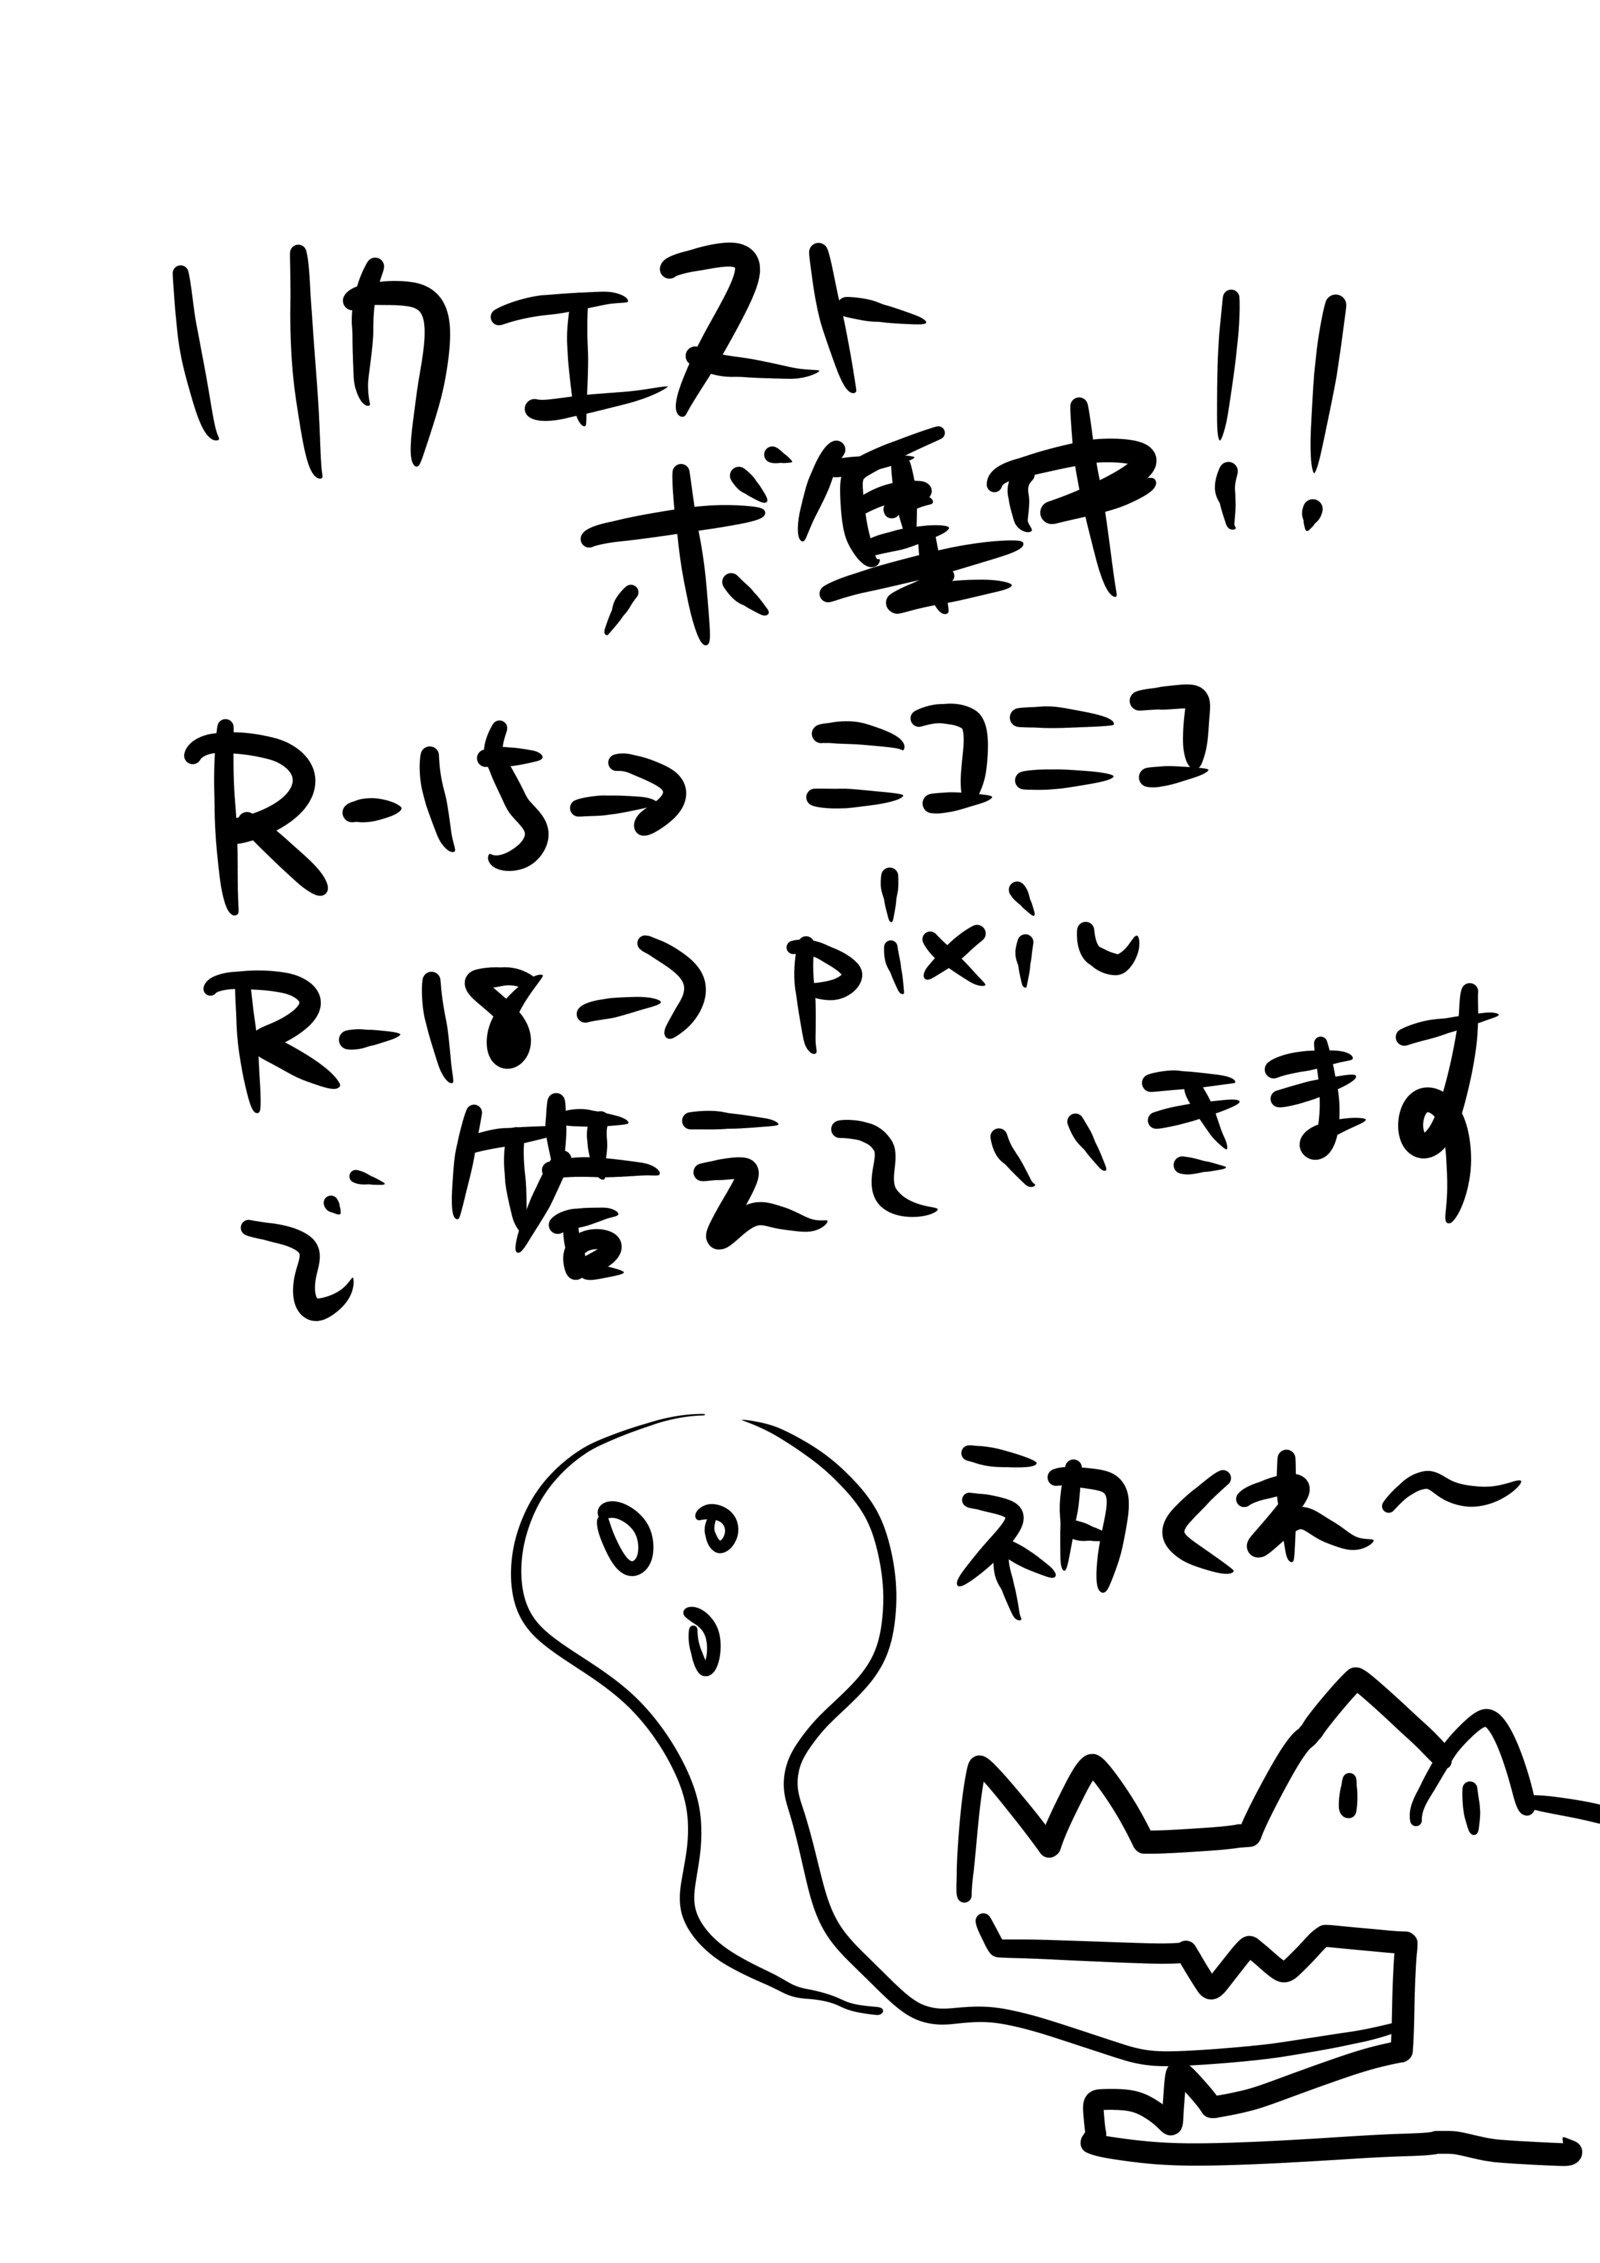 リクエスト
ボ集中!!
R-15→ ニコニコ
R-18→ pixiv
で答えていきます
ネタくれ〜